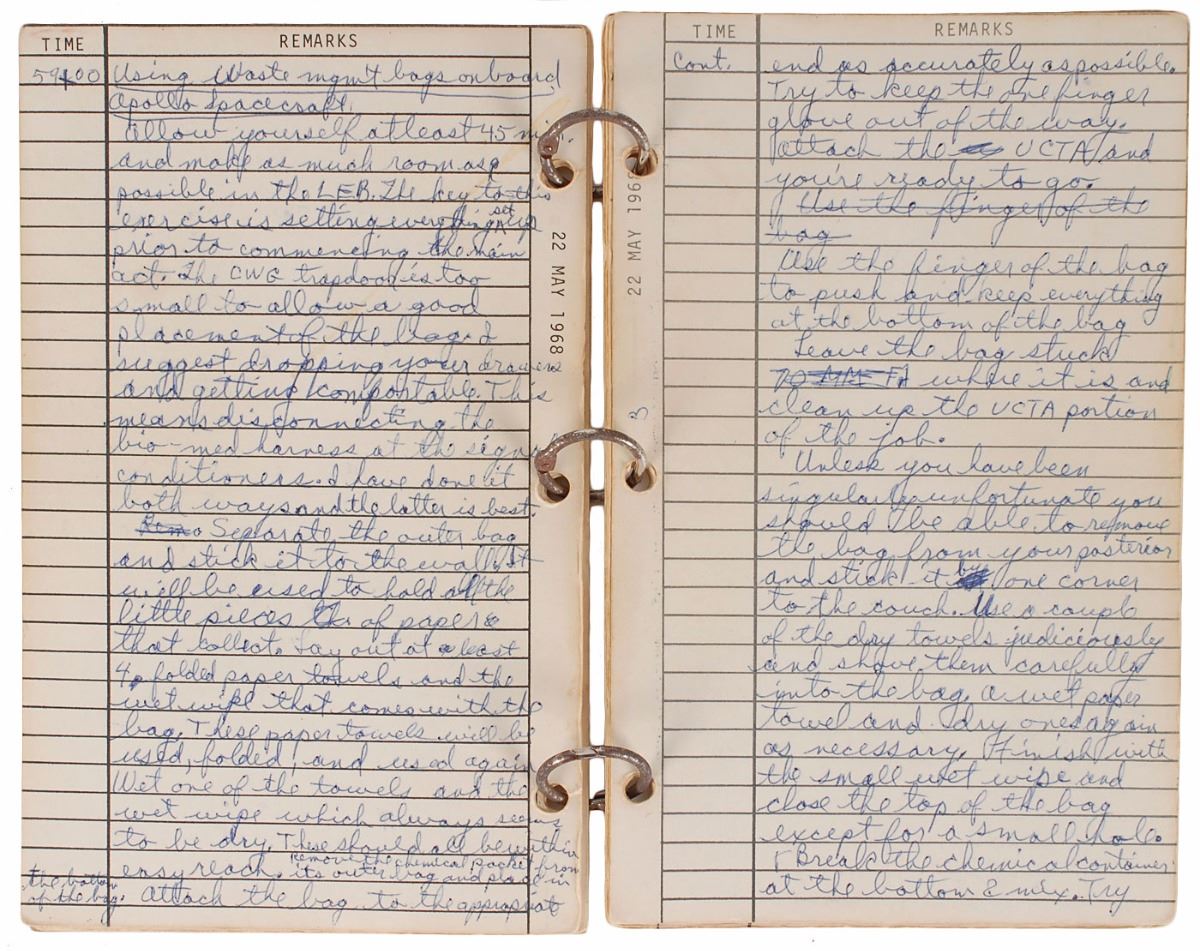 TIME REMARKS
59:00 Using Waste mgm't bags onboard
Apollo Spacecraft.
Allow yourself at least 45 min.
and make as much room as
possible in the LEB. The key to this
exercise is setting everything set up
prior to commencing the main
act. The CWG trapdoor is too
small to allow a good
placement of the bag. I
suggest dropping your drawers
and getting comfortable. This
means disconnecting the
bio-med harness at the signal
conditioners. I have done it
both ways and the latter is best.
Separate the outer bag
and stick it to the wall. It
will be used to hold all the
little pieces of paper
that collect. Lay out at least
4 folded paper towels and the
wet wipe that comes with the
bag. These paper towels will be
used, folded, and used again
Wet one of the towels and the
wet wipe which always seems
to be dry. These should all be within
easy reach. Remove the chemical packet from
its outer bag and place in
the bottom
of the bag.
Attach the bag to the appropriate
22 MAY 1968
TIME REMARKS
Cont. end as accurately as possible.
Try to keep the one finger
glove out of the way.
Attach the UCTA and
you're ready to go.
Use the finger of the
bag
Use the finger of the bag
to push and keep everything
at the bottom of the bag
Leave the bag stuck
where it is and
clean up the UCTA portion
of the job.
Unless you have been
singularly unfortunate you
should be able to remove
the bag from your posterior
and stick it by one corner
to the couch. Use a couple
of the dry towels judiciously
and shove them carefully
into the bag. A wet paper
towel and dry ones again
as necessary. Finish with
the small wet wipe and
close the top of the bag
except for a small hole.
Break the chemical container
at the bottom & mix. Try
22 MAY 1968
3